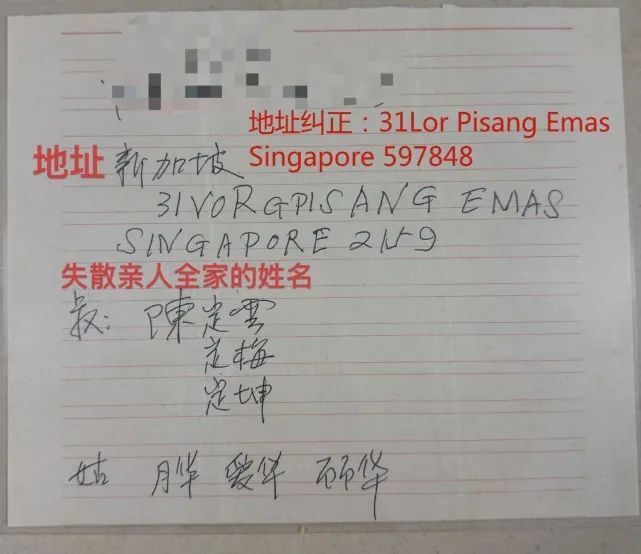 地址纠正：31Lor Pisang Emas
Singapore 597848
地址 新加坡
31VORGPISANG EMAS
SINGAPORE 2159
失散亲人全家的姓名
叔: 陳定雲
定梅
定坤
姑 月华 愛华 顾华